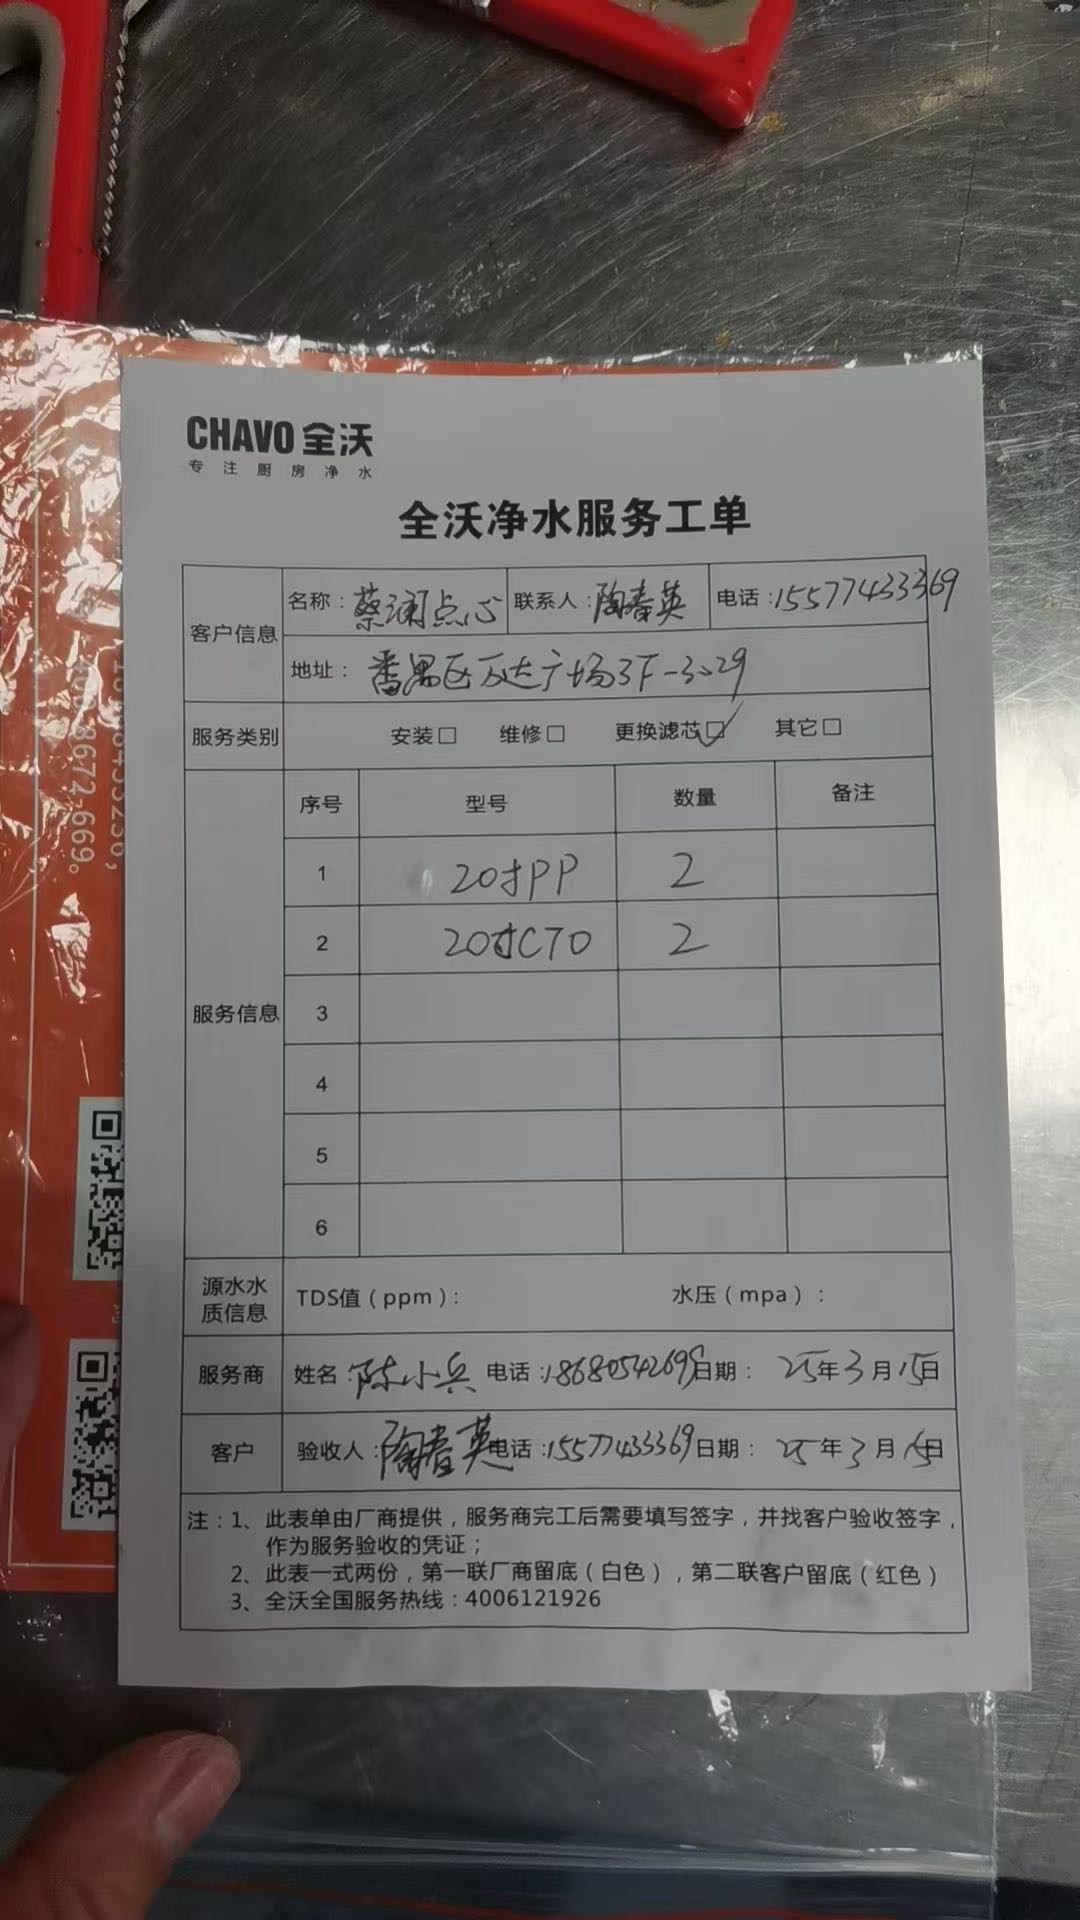 CHAVO 全沃
专注厨房净水
全沃净水服务工单
客户信息 名称：蔡澜点心 联系人：陶春英 电话：15577433369
地址：番禺区万达广场3F-3029
服务类别 安装□ 维修□ 更换滤芯☑ 其它□
服务信息 序号 型号 数量 备注
1 20寸PP 2
2 20寸CTO 2
3
4
5
6
源水水质信息 TDS值（ppm）： 水压（mpa）：
服务商 姓名：陈小兵 电话：18680542699 日期：25年3月15日
客户 验收人：陶春英 电话：15577433369 日期：25年3月15日
注：1、此表单由厂商提供，服务商完工后需要填写签字，并找客户验收签字，
作为服务验收的凭证；
2、此表一式两份，第一联厂商留底（白色），第二联客户留底（红色）
3、全沃全国服务热线：4006121926
8672 669。